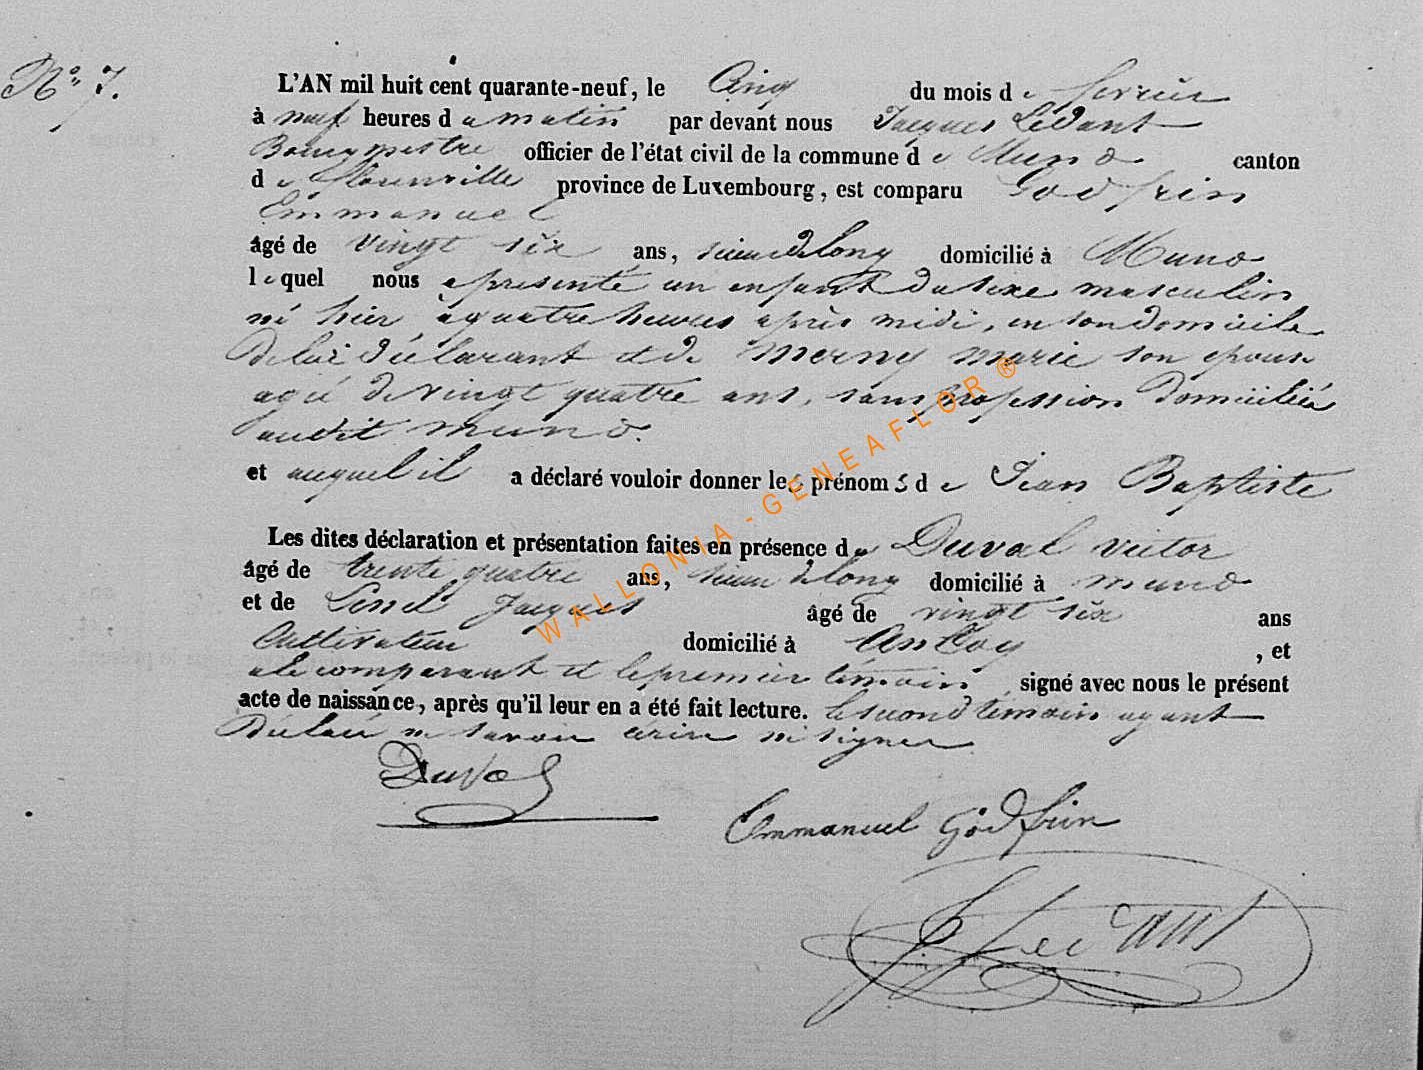 N° 7.
L'AN mil huit cent quarante-neuf, le Cinq du mois de fevrier
à neuf heures du matin par devant nous Jacques Ledant
Bourgmestre officier de l'état civil de la commune de Muno canton
de florenville province de Luxembourg, est comparu Godfrin
Emmanuel
âgé de vingt six ans, sieur de long domicilié à Muno
lequel nous a présenté un enfant du sexe masculin
né hier à quatre heures après midi, en son domicile
de lui déclarant et de Merny marie son epouse
agée de vingt quatre ans, sans profession domiciliés
audit muno.
et auquel il a déclaré vouloir donner les prénoms de Jean Baptiste
Les dites déclaration et présentation faites en présence de Duval victor
âgé de trente quatre ans, sieur de long domicilié à muno
et de Jacques âgé de vingt six ans
Cultivateur domicilié à , et
le comparant et le premier témoin signé avec nous le présent
acte de naissance, après qu'il leur en a été fait lecture. le second témoin ayant
déclaré ne savoir écrire ni signer
Duval
Emmanuel Godfrin
J Ledant
WALLONIA - GENEAFLOR ®